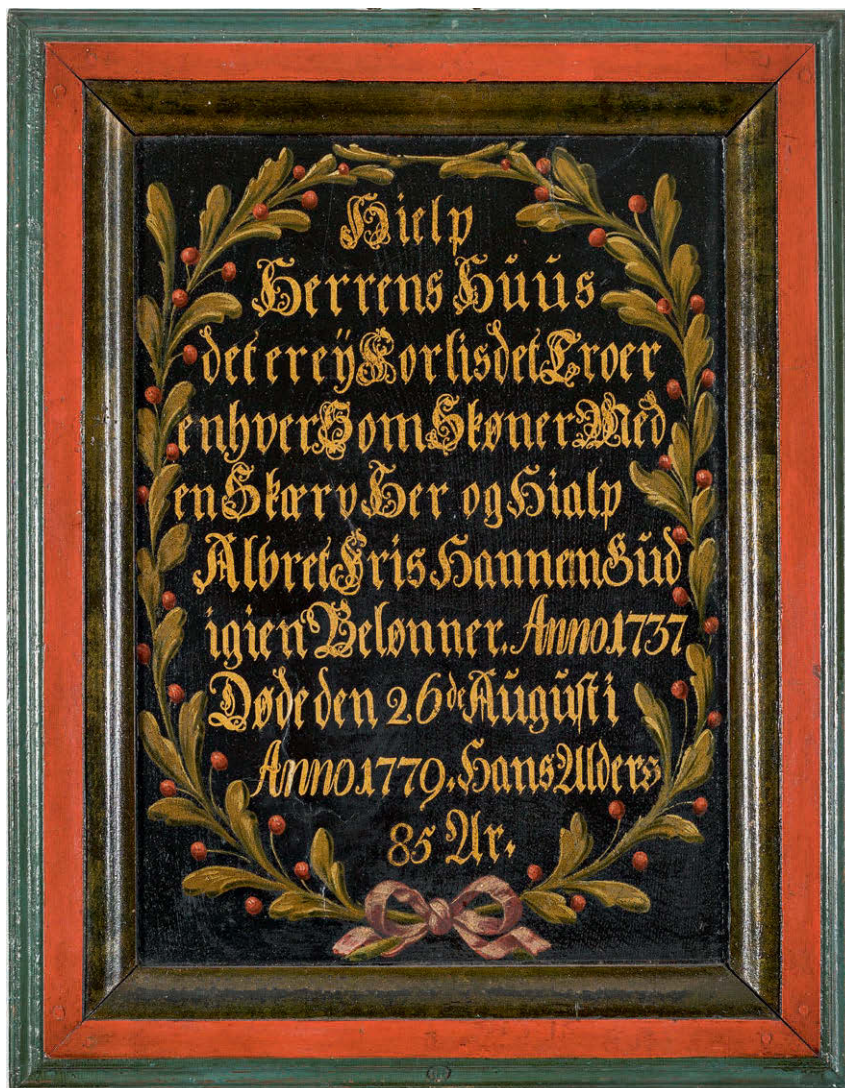 Hielp
Herrens Hüüs
det er eÿ Forlis det Troer
enhver Som Skøner Med
en Skærv Her og Hialp
Albret Fris Hannem Gud
igien Belønner. Anno 1737
Døde den 26de Augusti
Anno 1779. Hans Alders
85 Ar.